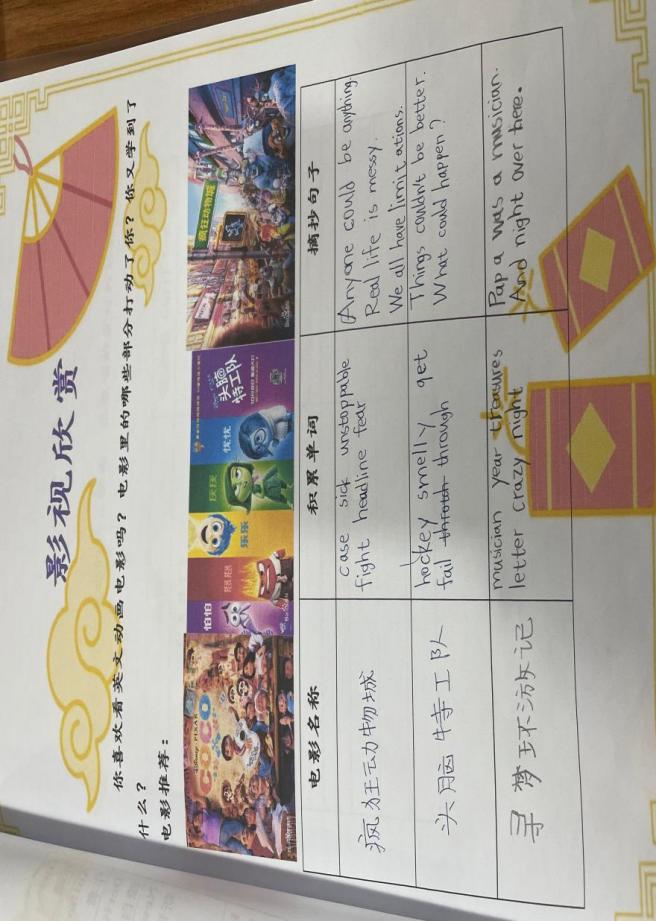 影视欣赏
你喜欢看英文动画电影吗？电影里的哪些部分打动了你？你又学到了
什么？
电影推荐：
Disney PIXAR
COCO
怕怕
怒怒
乐乐
厌厌
忧忧
头脑
特工队
疯狂动物城
电影名称 积累单词 摘抄句子
疯狂动物城
case sick unstoppable
fight headline fear
Anyone could be anything.
Real life is messy.
We all have limitations.
头脑特工队
hockey smelly get
fail through
Things couldn't be better.
What could happen?
寻梦环游记
musician year treasures
letter crazy night
Papa was a musician.
And night over here.